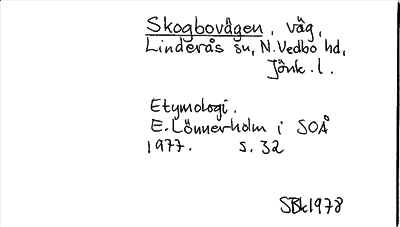 Skogbovägen, väg,
Linderås sn, N. Vedbo hd,
Jönk. l.
Etymologi.
E. Lönnerholm i SOÅ
1977. s. 32
SBk 1978